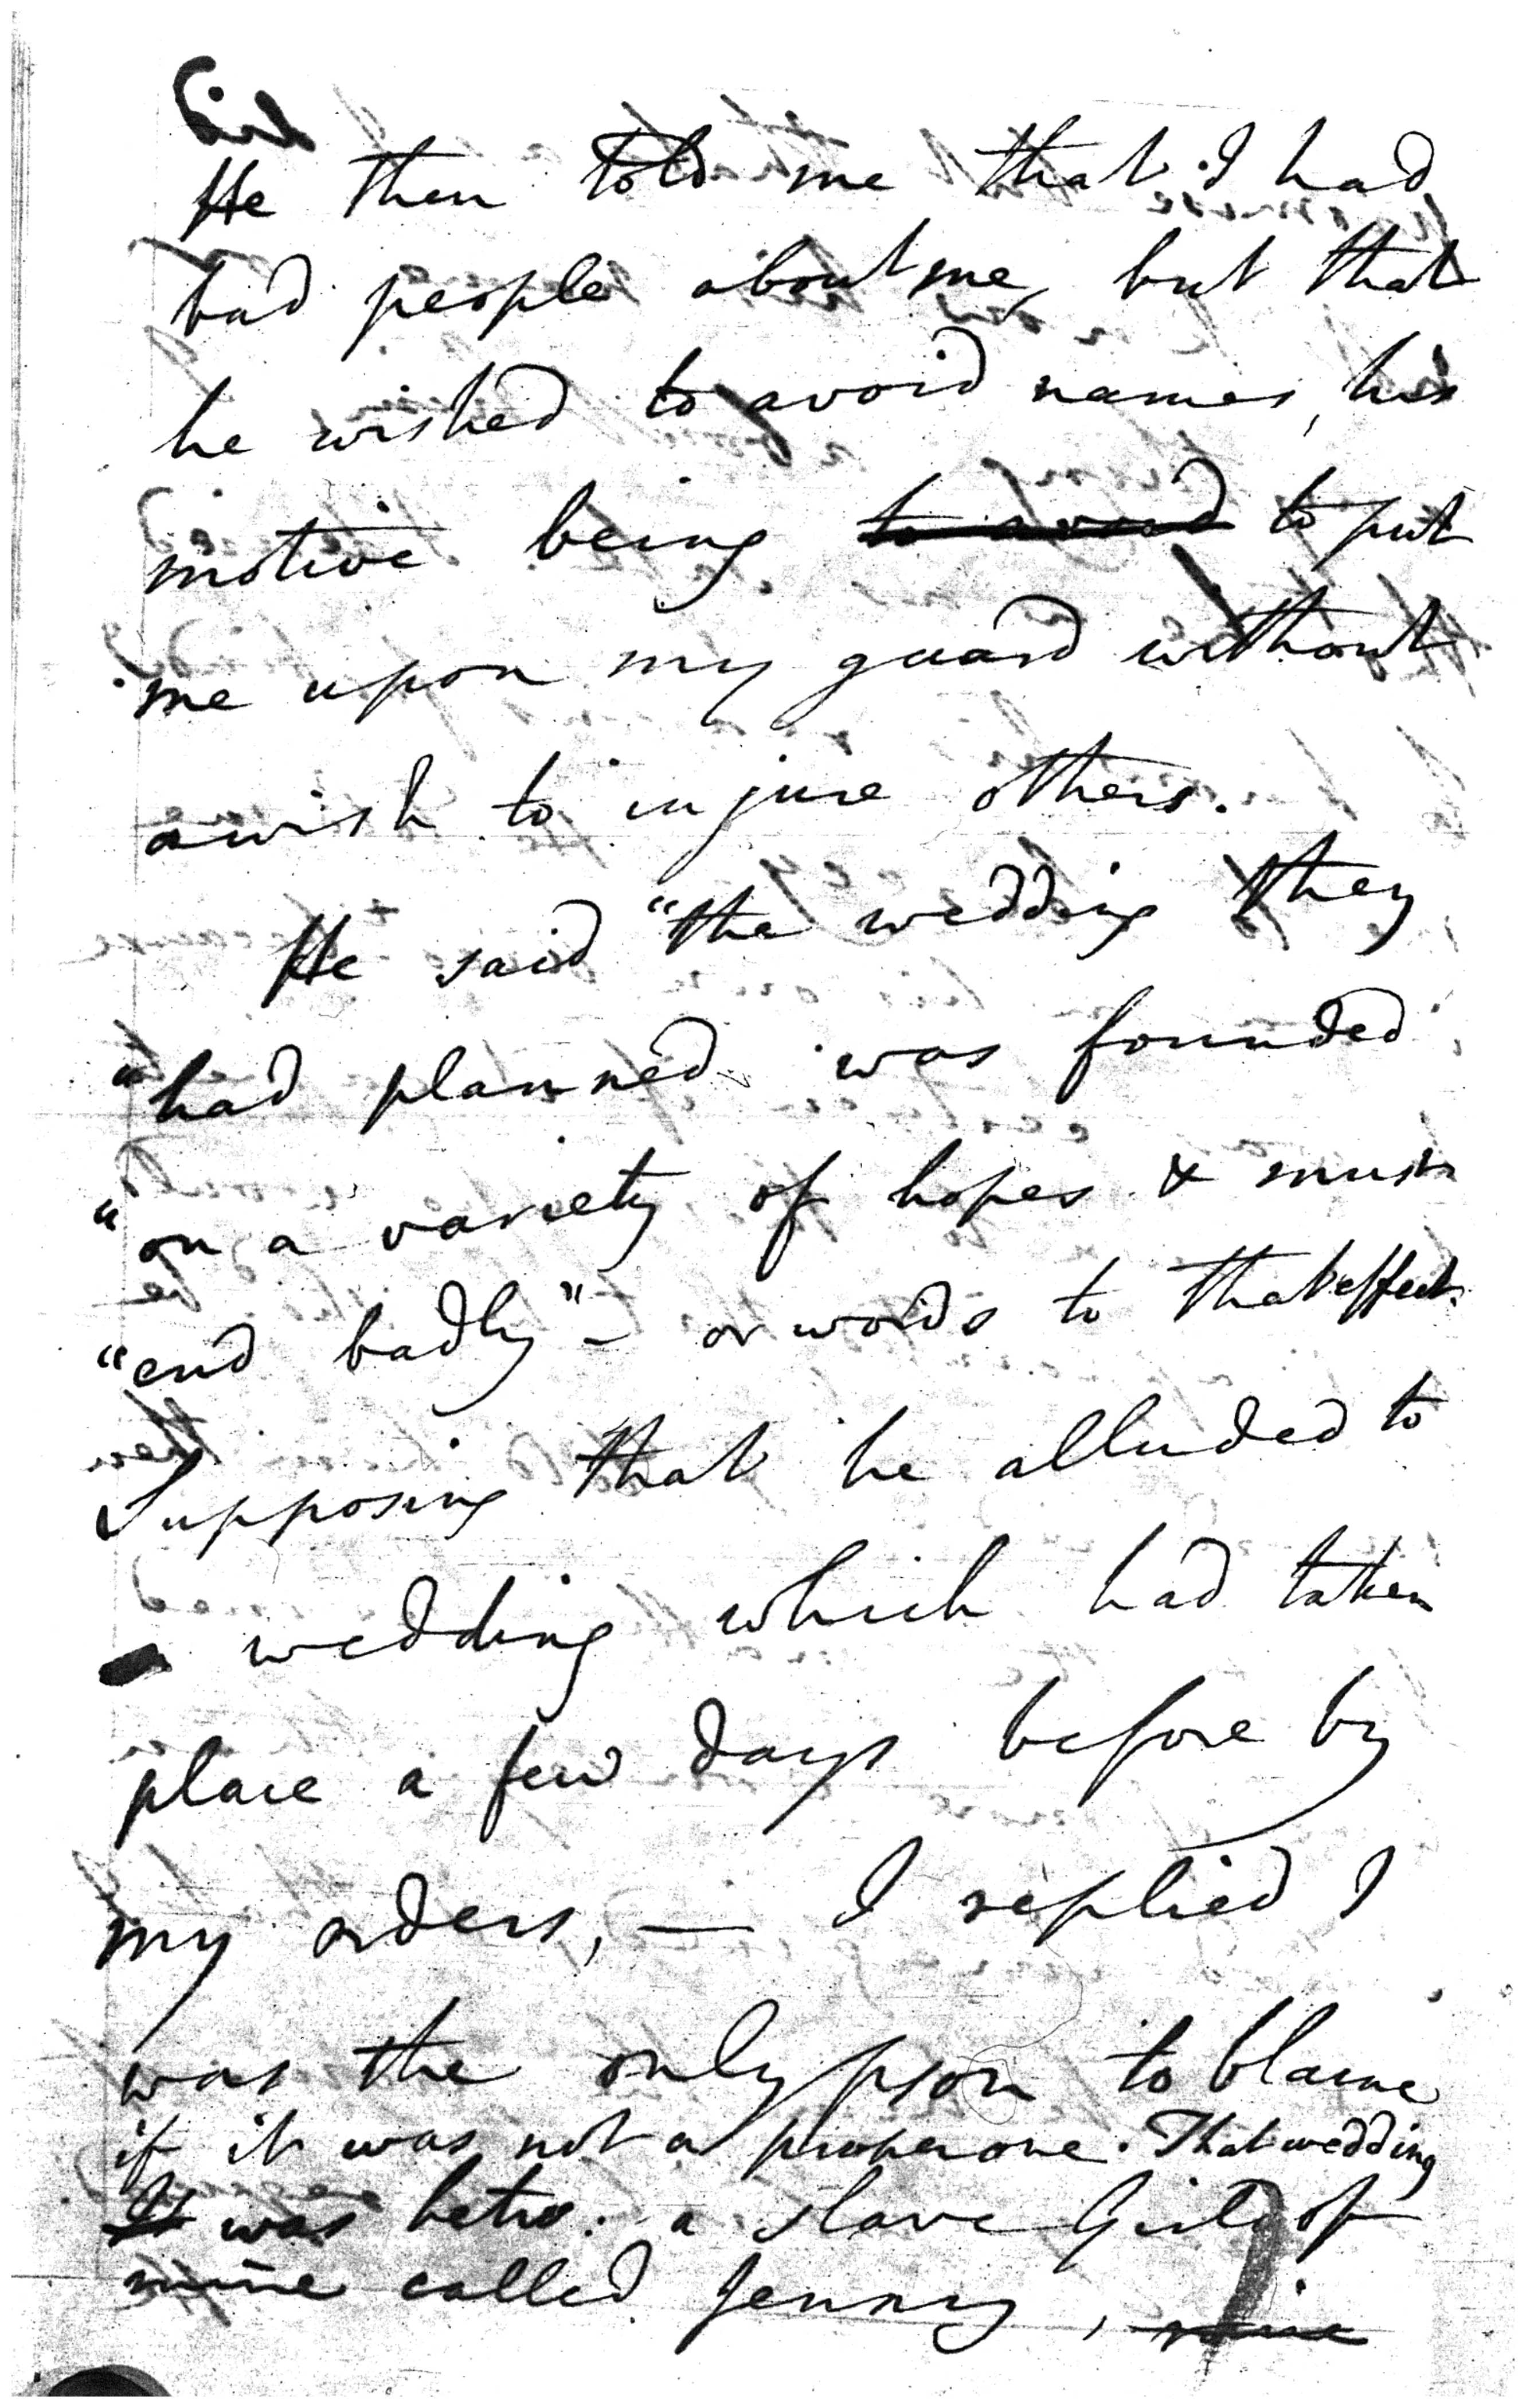 He then told me that I had
bad people about me, but that
he wished to avoid names, his
motive being to avoid to put
me upon my guard without
a wish to injure others.
He said "the wedding they
"had planned was founded
"on a variety of hopes & must
"end badly" – or words to that effect.
Supposing that he alluded to
wedding which had taken
place a few days before by
my orders, — I replied I
was the only pson to blame
if it was not a proper one. That wedding
It was betw. a slave Girl of
mine called Jenny,